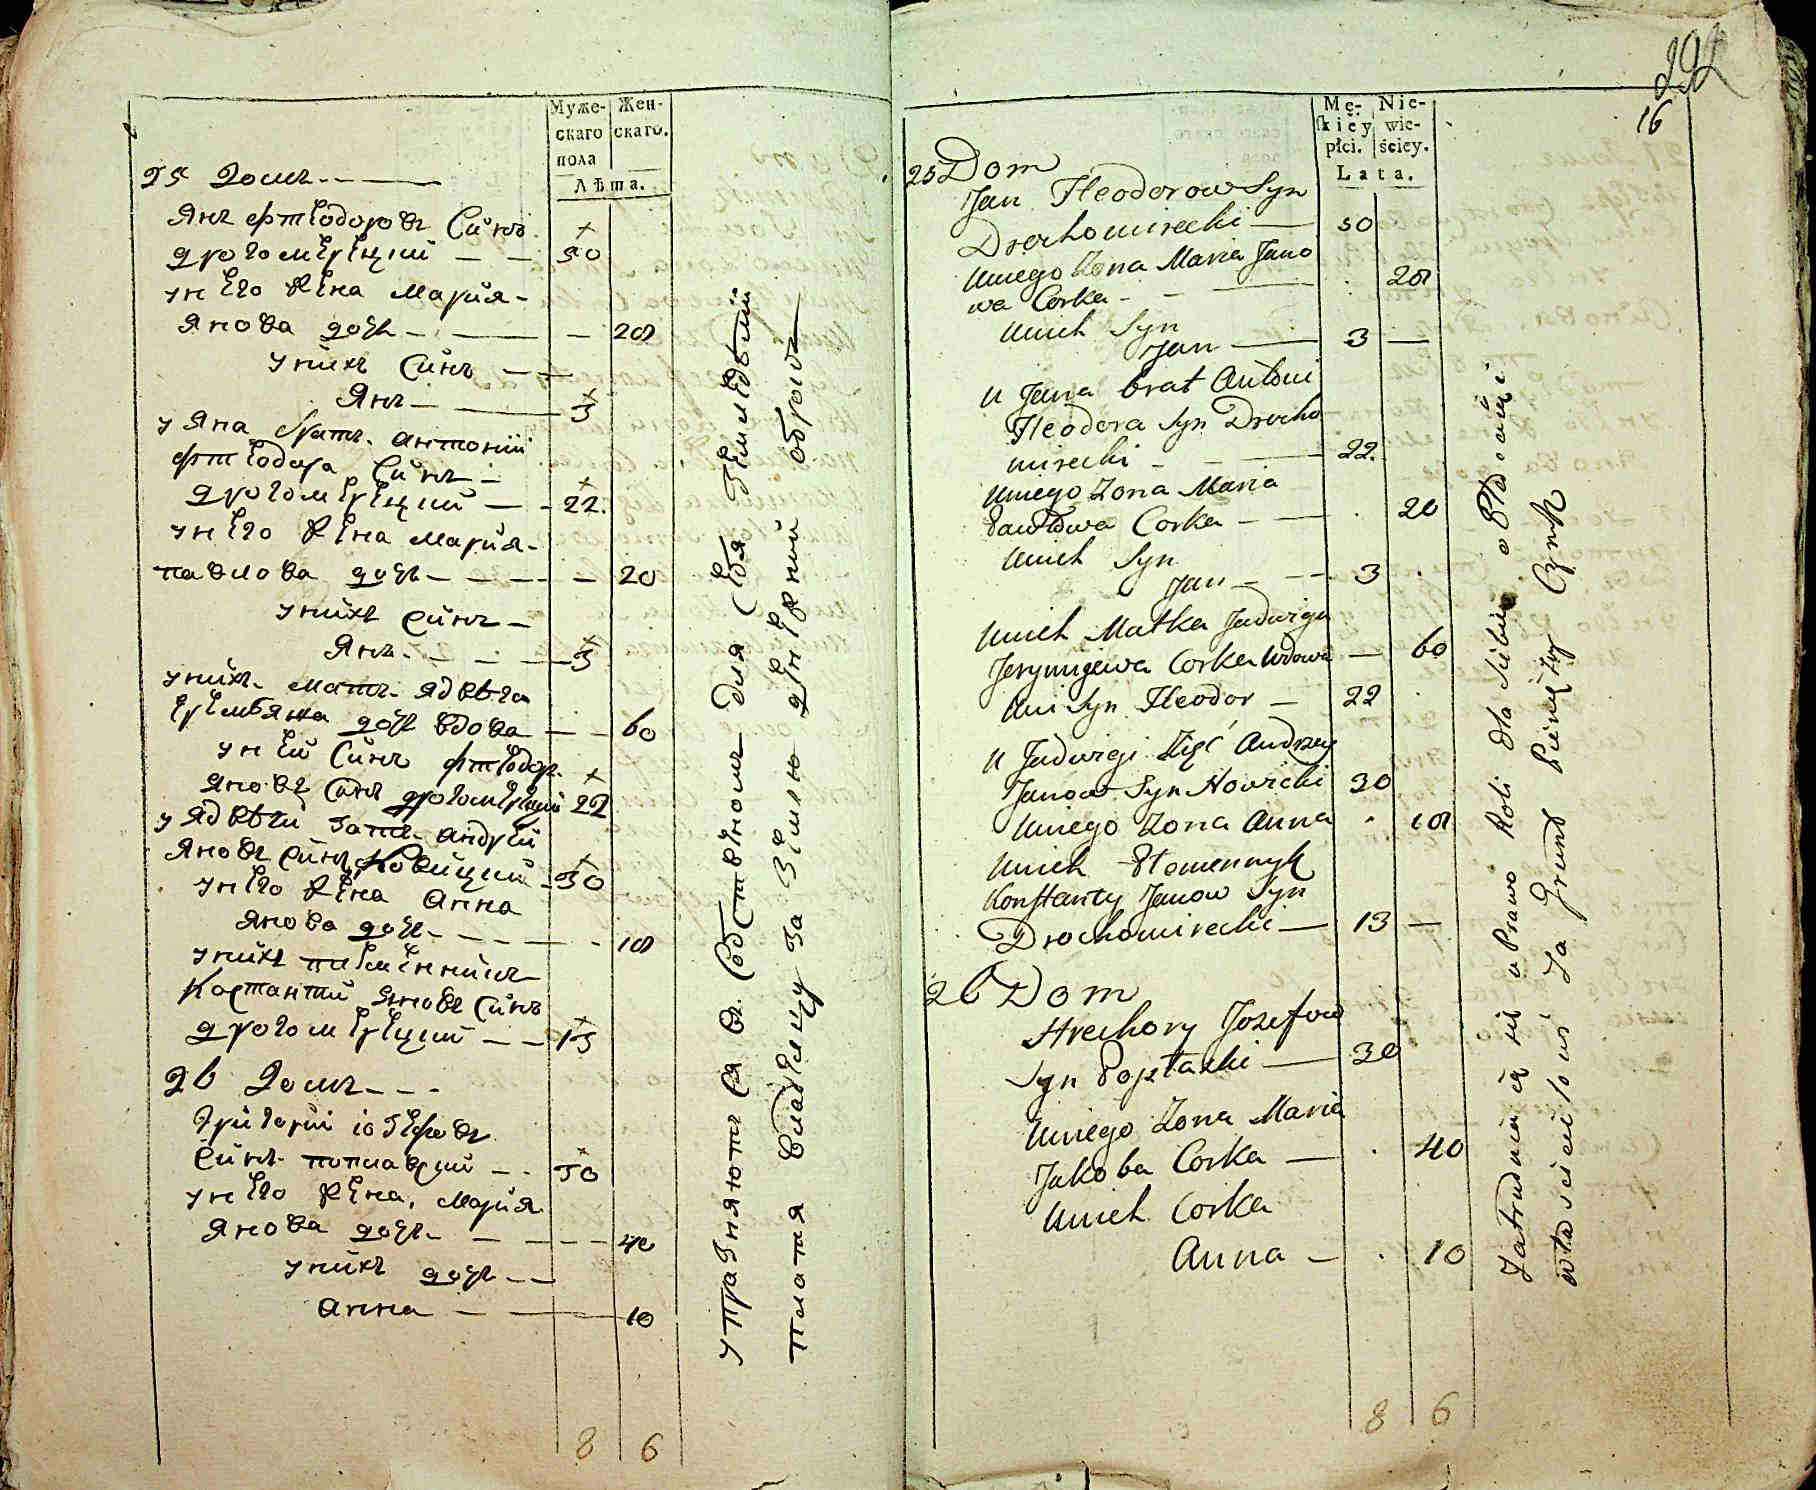 Муже-
скаго
пола
Жен-
скаго.
Лѣта.
25 Домъ
Янъ Фтеодоровъ Синъ
Дрогомерецкий 50
у него жена Мария
Янова дочь 28
у нихъ Синъ
Янъ 3
у Яна братъ Антоній
Фтеодора Синъ
Дрогомерецкий 22
у него жена Мария
павлова дочь 20
у нихъ Синъ
Янъ 3
у нихъ Мать Ядвѣга
дочь вдова 60
у ней Синъ Фтеодоръ
Яновъ Синъ Дрогомерецкий 22
у Ядвѣги зять андрей
Яновъ Синъ Новицкий 30
у него жена Анна
Янова дочь 18
у нихъ племенникъ
Костантий Яновъ Синъ
Дрогомерецкий 13
26 Домъ
Григорий іозефовъ
Синъ поплавский 30
у него жена Мария
Янова дочь 40
у нихъ дочь
Анна 10
8 6
упразняются въ Собственомъ для Себя Земледѣлій
платя владѣлцу за Землю денежний оброкъ
292
16
Mę-
skiey
płci.
Nie-
wie-
ściey.
Lata.
25 Dom
Jan Fteodorow Syn
Drochomirecki 50
Uniego Zona Maria Jano
wa Corka 28
Unich Syn
Jan 3
U Jana brat Antoni
Fteodora Syn Drocho
mirecki 22
Uniego Zona Maria
Pawłowa Corka 20
Unich Syn
Jan 3
Unich Matka Jadwiga
Corka Wdowa 60
Uni Syn Fteodor 22
U Jadwigi Zięć Andrzey
Janow Syn Nowicki 30
Uniego Zona Anna 18
Unich Plemennyk
Konstanty Janow Syn
Drochomirecki 13
26 Dom
Hrehory Jozefow
Syn Popławski 30
Uniego Zona Maria
Jakoba Corka 40
Unich Corka
Anna 10
8 6
Zatrudnia się uprawą Roli dla siebie a Płaci
włascicielowi za Grunt Pieniężny Czynsz